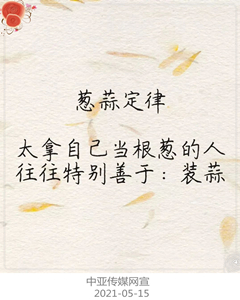 葱蒜定律
太拿自己当根葱的人
往往特别善于：装蒜
中亚传媒网宣
2021-05-15